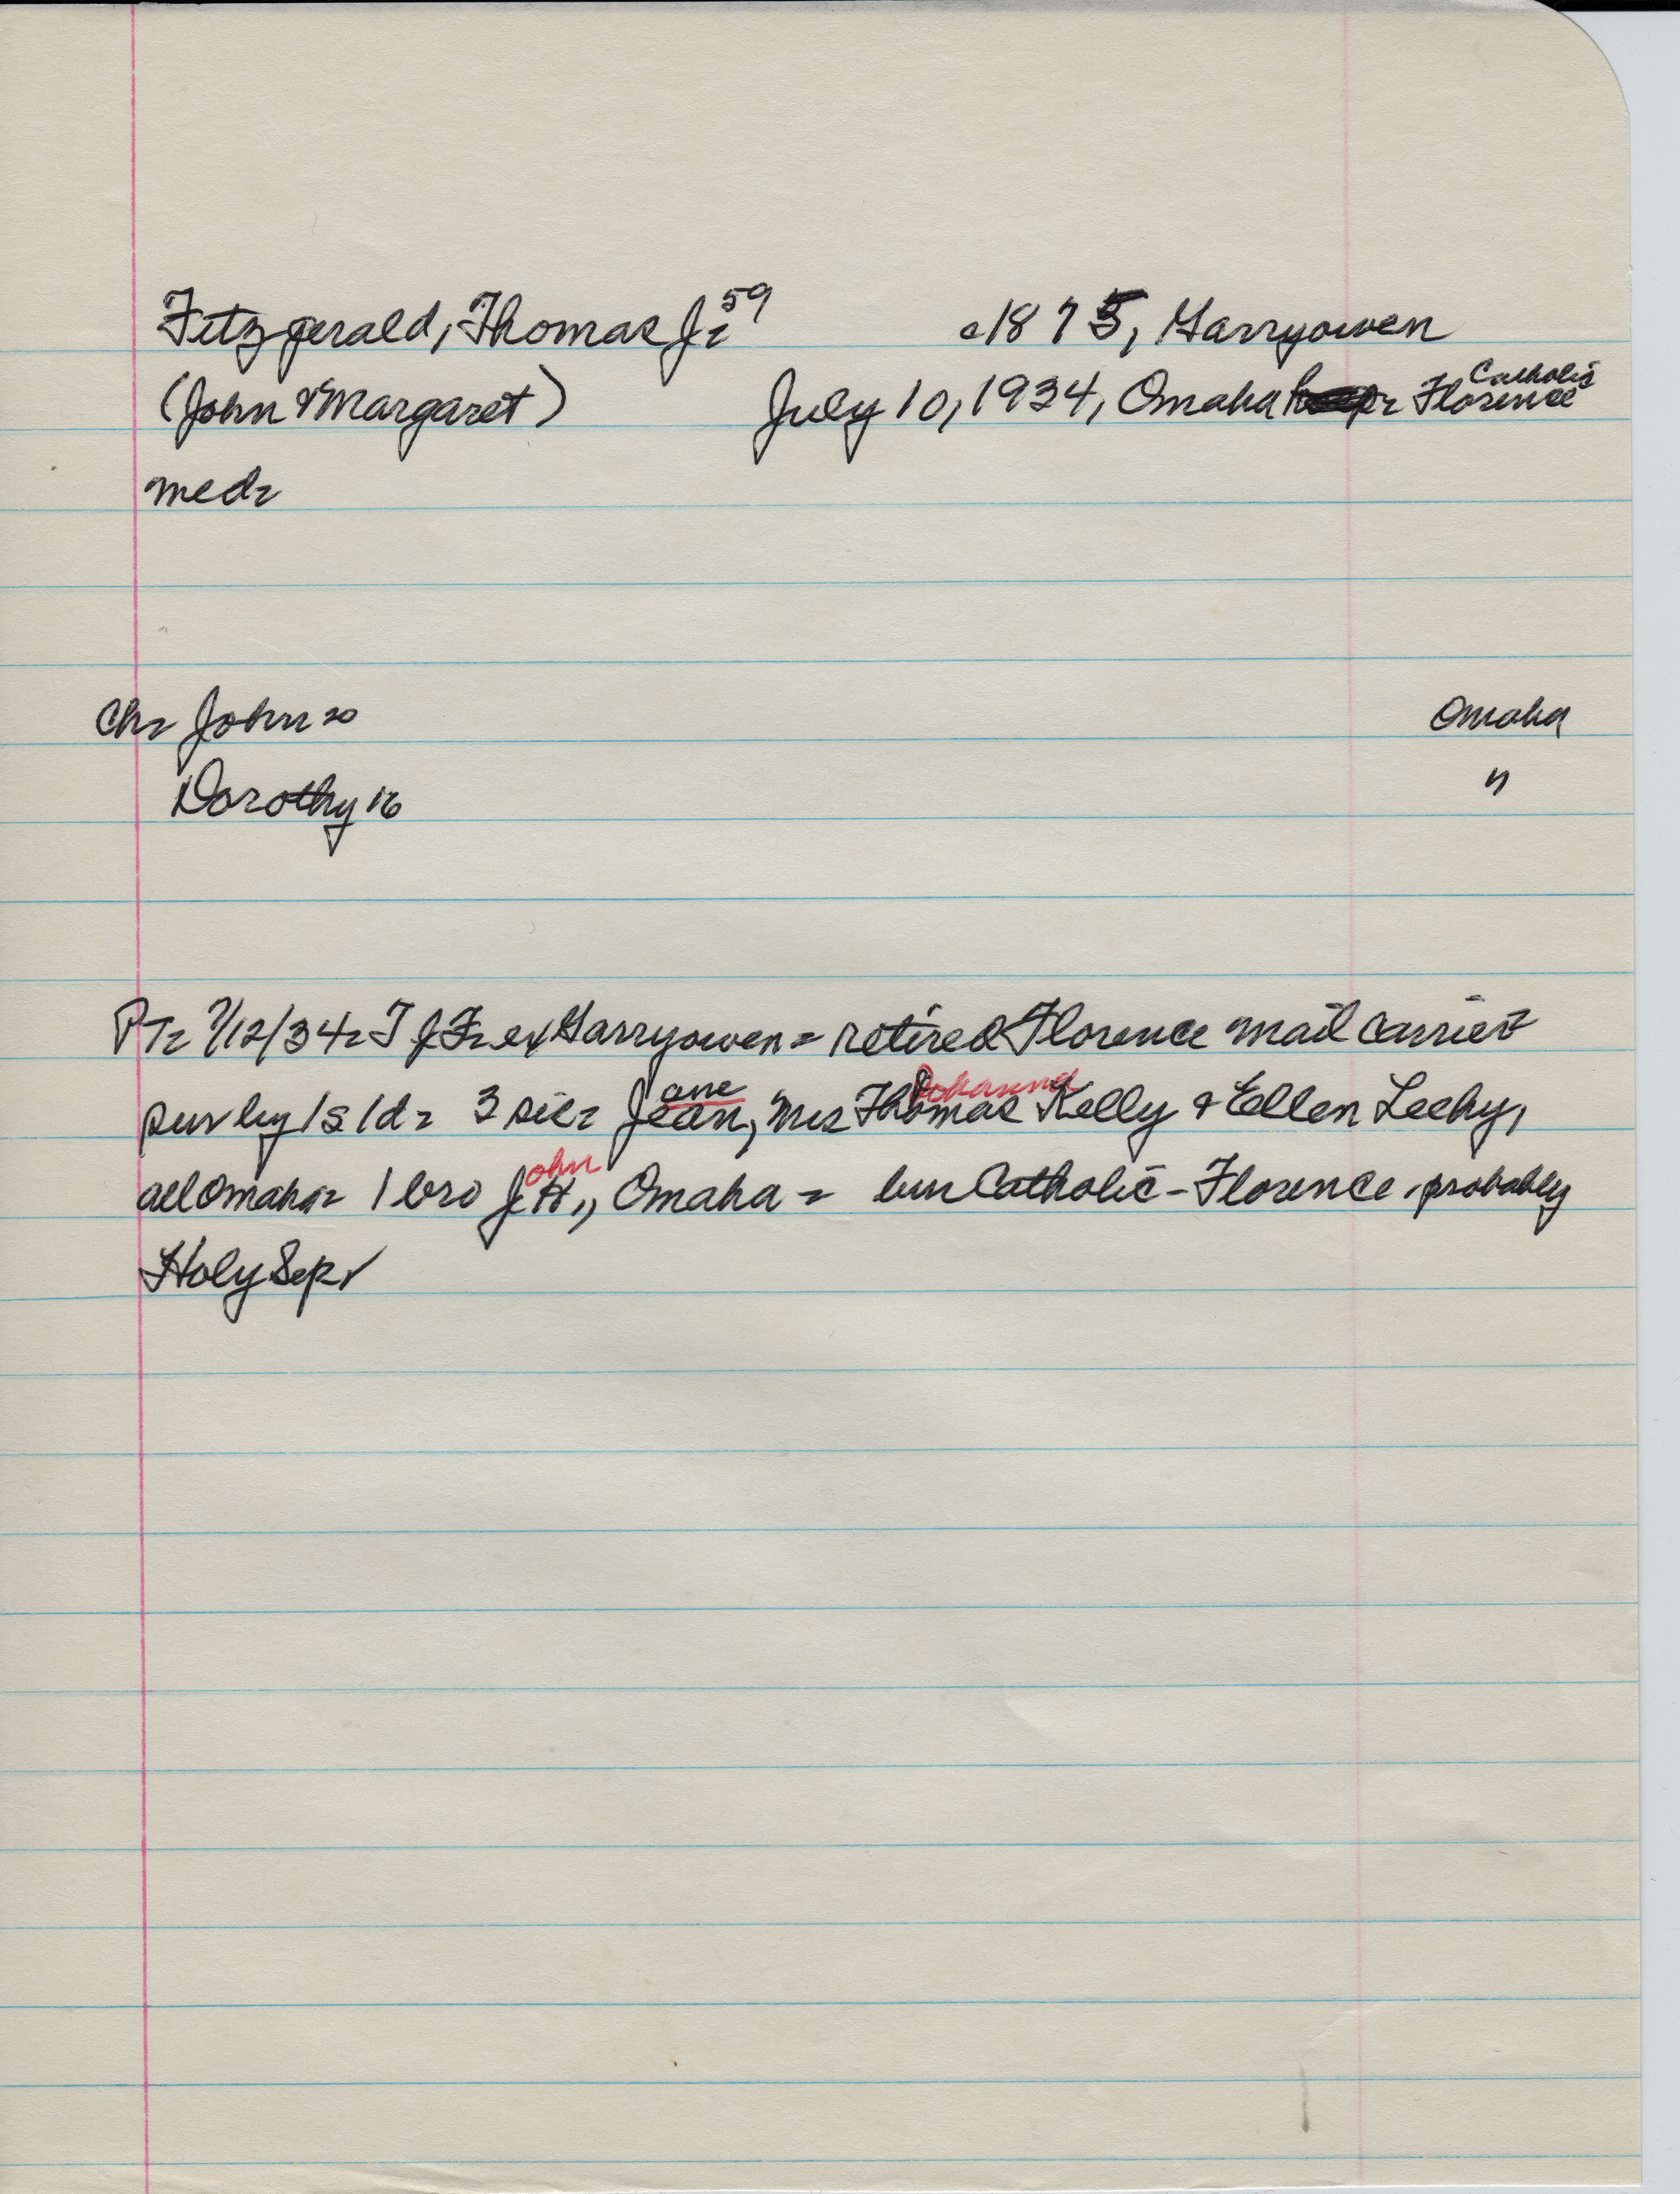 Fitzgerald, Thomas J= 59 c1875, Garryowen
(John & Margaret) July 10, 1934, Omaha = Florence Catholic
med=
Ch= John 20 Omaha
Dorothy 16 "
PT= 7/12/34= T J F= ex Garryowen = retired Florence mail carrier
surv by 1s 1d= 3 sis= Jean, ane Mrs Thomas Johanna Kelly & Ellen Leehy,
all Omaha= 1 bro J ohn H., Omaha = bur Catholic - Florence. probably
Holy Sepr